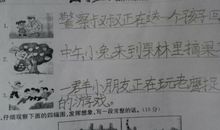 警察叔叔正在送一个孩子回
中午小兔来到果林里摘果
一群小朋友正在玩老鹰捉
的游戏。
仔细观察下面的四幅图,发挥想象,写一段完整的话。(15分)